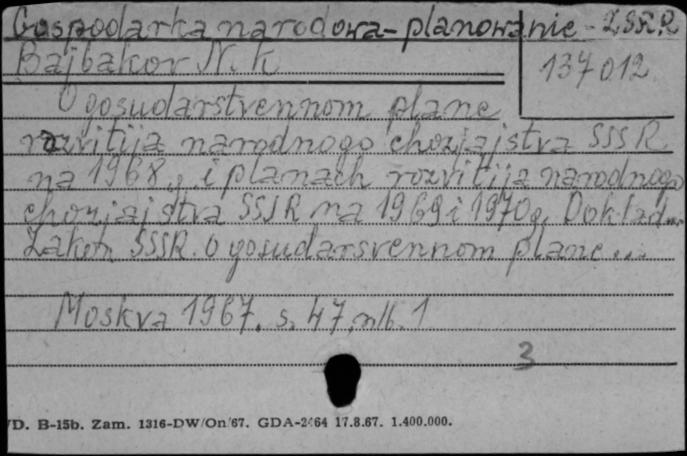 Gospodarka narodowa - planowanie - ZSRR
Bajbakov N. K
137012
O gosudarstvennom plane
rozvitija narodnogo chozjajstva SSSR
na 1968 g. i planach rozvitija narodnogo
chozjajstva SSSR na 1969 i 1970 g. Doklad...
Zakon SSSR. O gosudarsvennom plane...
Moskva 1967. s. 47, nlb. 1
3
D. B-15b. Zam. 1316-DW/On/67. GDA-2464 17.8.67. 1.400.000.